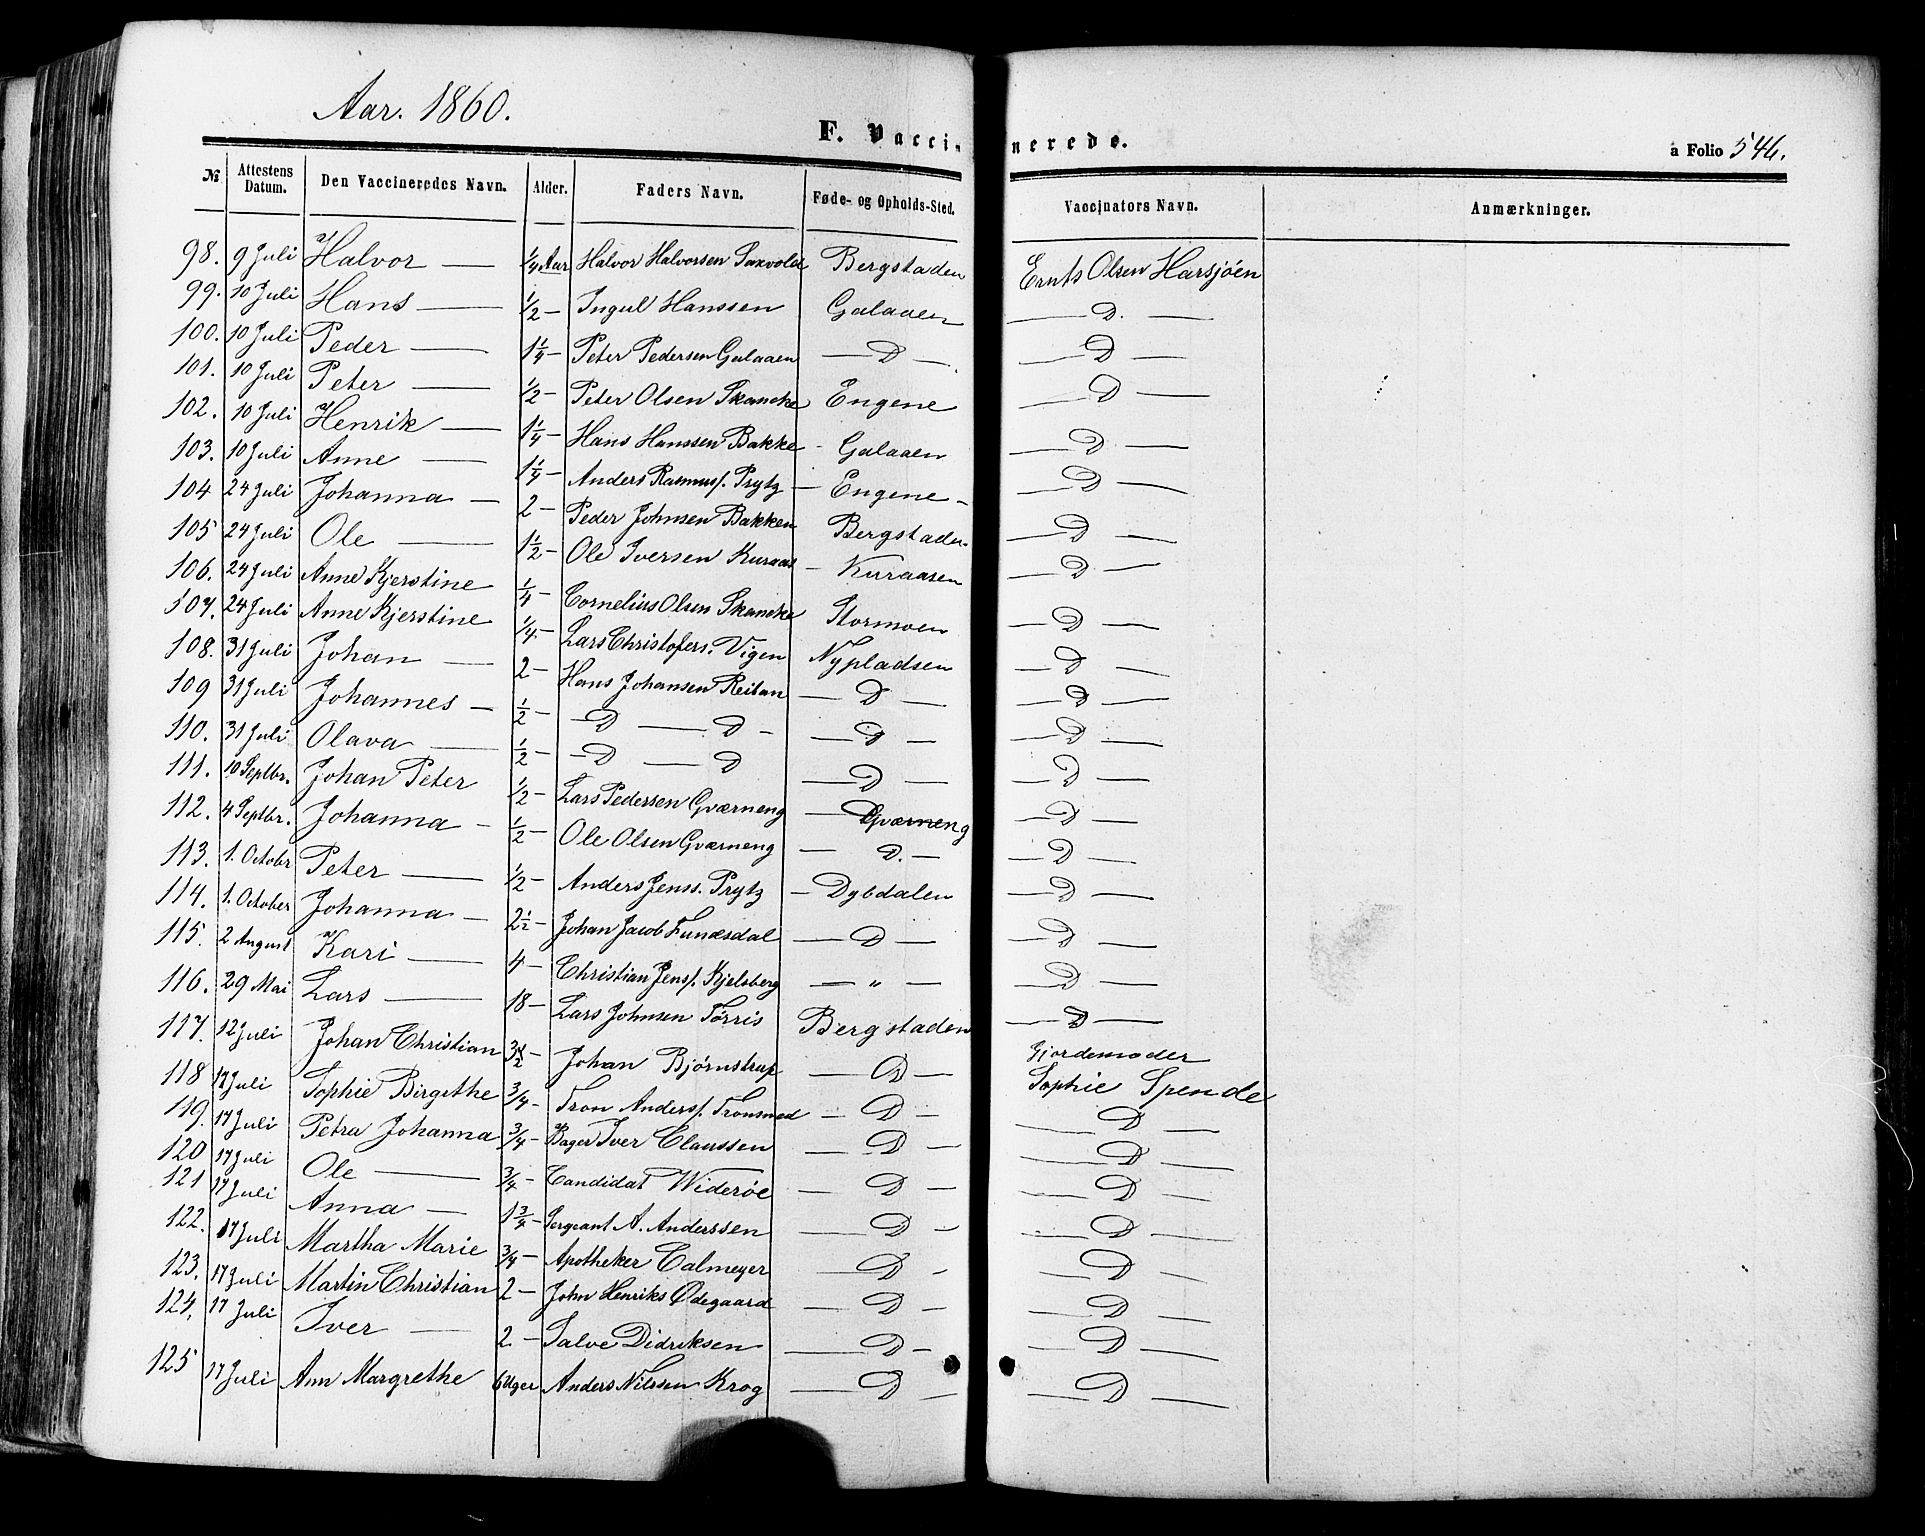 Aar. 1860.
F. Vaccinerede.
a Folio 546.
№ Attestens Datum. Den Vaccineredes Navn. Alder. Faders Navn. Føde- og Opholds-Sted. Vaccinators Navn. Anmærkninger.
98. 9 Juli Halvor — 1/4 Aar Halvor Halvorsen Saxvold Bergstaden Ernts Olsen Harsjöen
99. 10 Juli Hans — 1/2 — Ingul Hanssen Galaaen — D. —
100. 10 Juli Peder — 1 1/4 — Peter Pedersen Galaaen — D — — D —
101. 10 Juli Peter — 1/2 — Peter Olsen Skancke Engene — D —
102. 10 Juli Henrik — 1 1/4 — Hans Hanssen Bakke - Galaaen — D —
103. 10 Juli Anne — 1 1/4 — Anders Rasmuss. Prytz — Engene — — D —
104 24 Juli Johanna — 2 — Peder Johnsen Bakken Bergstaden — D —
105 24 Juli Ole — 1 1/2 — Ole Iversen Kuraas — Kuraasen — D —
106. 24 Juli Anne Kjerstine 1/4 — Cornelius Olsen Skancke Stormoen — D —
107. 24 Juli Anne Kjerstine 1/4 — Lars Christofers. Vigen Nypladsen — D —
108. 31 Juli Johan — 2 — Hans Johansen Reitan — D — — D —
109 31 Juli Johannes — 1/2 — — D — D — — D — — D —
110. 31 Juli Olava — 1/2 — — D — D — D — — D —
111. 10 Septbr. Johan Peter 1/2 — Lars Pedersen Gværneng — Gværneng — D —
112. 4 Septbr. Johanna — 1/2 — Ole Olsen Gværneng — D. — — D —
113. 1. Octobr Peter — 1/2 — Anders Jenss. Prytz — Dybdalen — D —
114. 1. October Johanna — 2 1/2 — Johan Jacob Funæsdal — D — — D —
115. 2 August Kari — 4 — Christian Jenss. Kjelsberg — " — — D —
116. 29 Mai Lars — 18 — Lars Johnsen Tørris Bergstaden — D —
117. 12 Juli Johan Christian Johan Bjørnstrup — D — Gjordemoder Sophie Spende
118 17 Juli Sophie Birgithe 3/4 — Tron Anderss. Tronsmed — D — — D —
119. 17 Juli Petra Johanna 3/4 — Bager Iver Claussen — D — — D —
120 17 Juli Ole — 3/4 — Candidat Widerøe — D — — D —
121 17 Juli Anna — 1 3/4 — Sergeant A. Anderssen — D — — D —
122. 17 Juli Martha Marie 3/4 — Apotheker Calmeyer — D — — D —
123. 17 Juli Martin Christian 2 — John Henriks Ødegaard — D — — D —
124. 17 Juli Iver — 2 — Salve Didriksen — D — — D —
125 17 Juli Ann Margrethe 6 Uger Anders Nilssen Krog — D — — D —